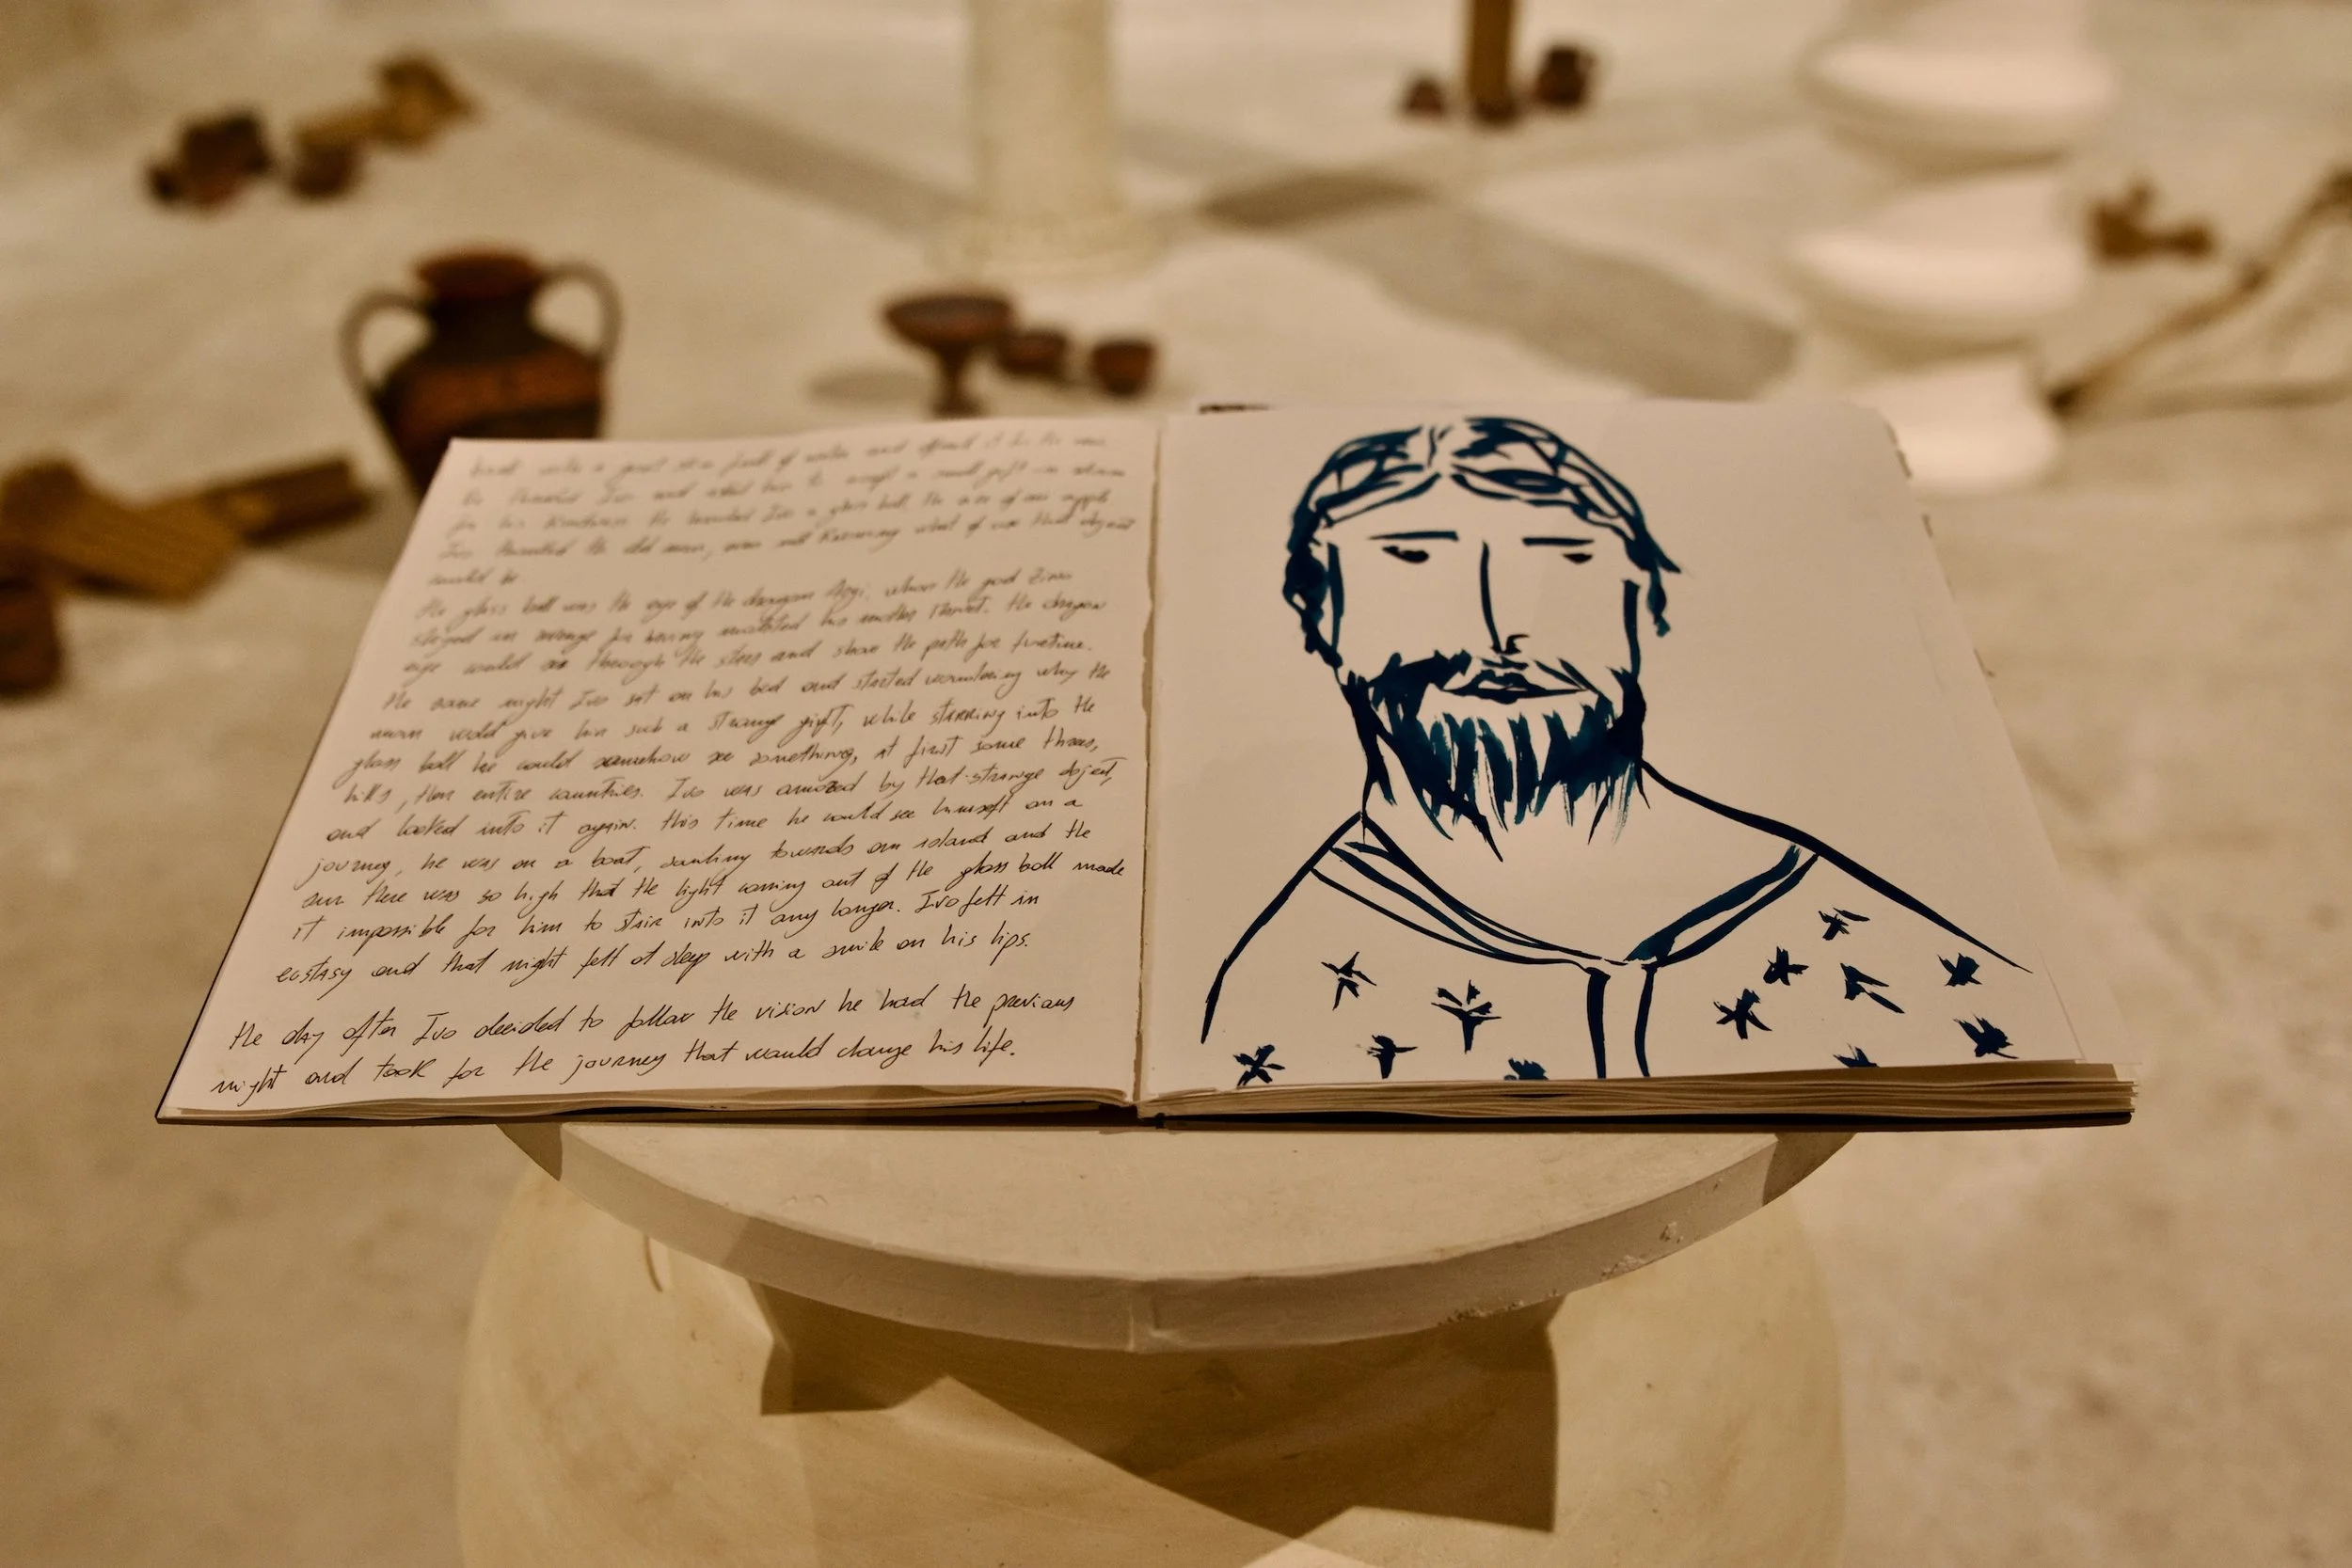 with a great            full of water and offered it to the
He thanked Ivo and asked him to accept a small gift in return
for his kindness. He handed Ivo a glass ball the size of an apple
Ivo thanked the old man, was not knowing what of use that object
could be.
The glass ball was the eye of the dragon        , whom the god
       in revenge for having              his mother          . the dragon
eye would see through the           and show the path for fortune.
the same night Ivo sat on his bed and started wondering why the
man would give him such a strange gift, while starring into the
glass ball he could somehow see something, at first some threes,
hills, then entire countries. Ivo was amazed by that strange object,
and looked into it again. this time he could see himself on a
journey, he was on a boat, sailing towards an island and the
sun there was so high that the light coming out of the glass ball made
it impossible for him to stair into it any longer. Ivo felt in
ecstasy and that night fell at sleep with a smile on his lips.
the day after Ivo decided to follow the vision he had the previous
night and took for the journey that would change his life.